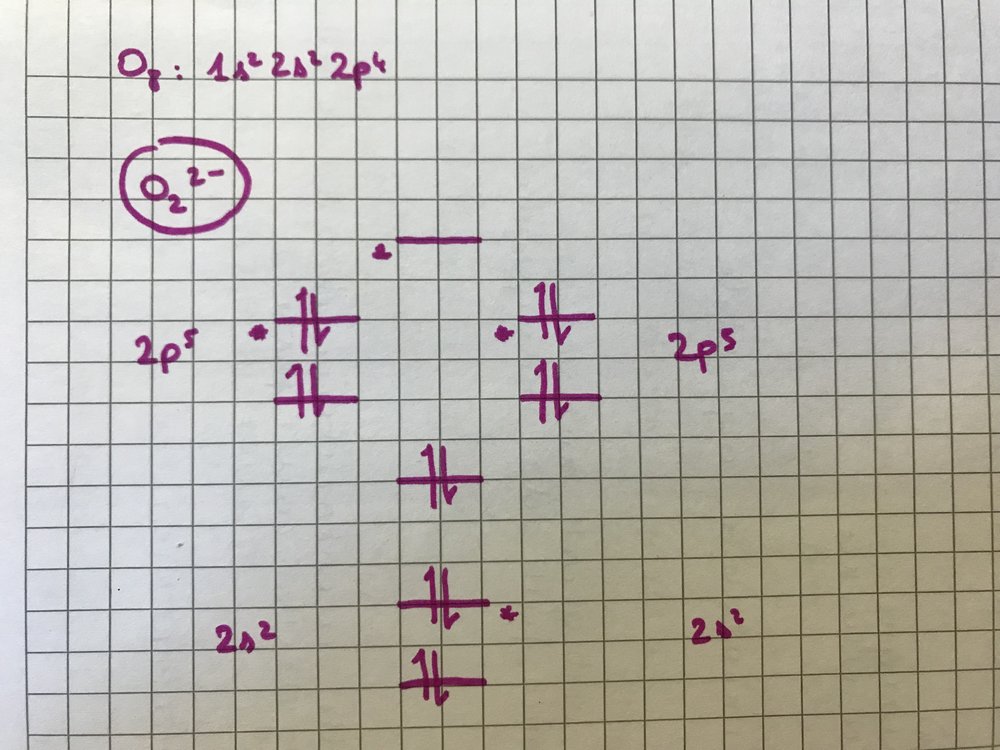 O₈: 1s² 2s² 2p⁴
O₂²⁻
*
* ⥮ * ⥮
2p⁵ 2p⁵
⥮ ⥮
⥮
⥮ *
2s² 2s²
⥮